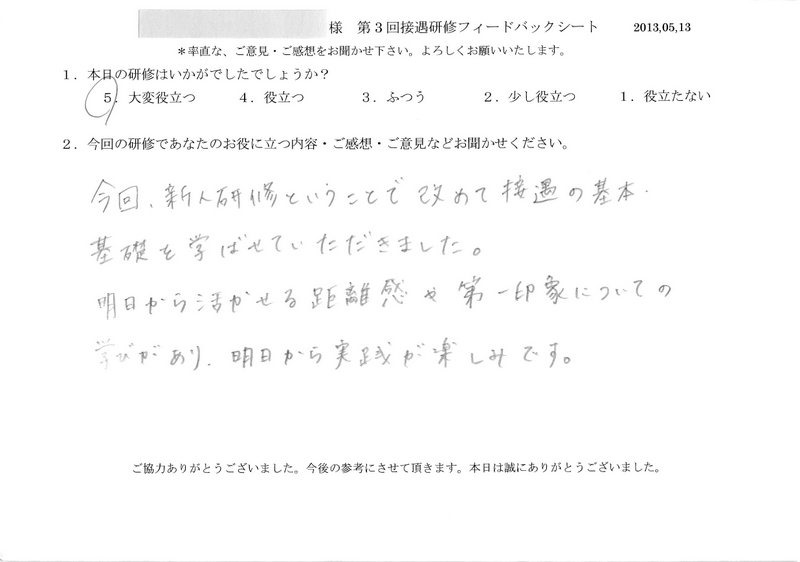 様 第３回接遇研修フィードバックシート 2013,05,13
＊率直な、ご意見・ご感想をお聞かせ下さい。よろしくお願いいたします。
１．本日の研修はいかがでしたでしょうか？
５．大変役立つ ４．役立つ ３．ふつう ２．少し役立つ １．役立たない
２．今回の研修であなたのお役に立つ内容・ご感想・ご意見などお聞かせください。
今回、新人研修ということで改めて接遇の基本・
基礎を学ばせていただきました。
明日から活かせる距離感や第一印象についての
学びがあり、明日から実践が楽しみです。
ご協力ありがとうございました。今後の参考にさせて頂きます。本日は誠にありがとうございました。